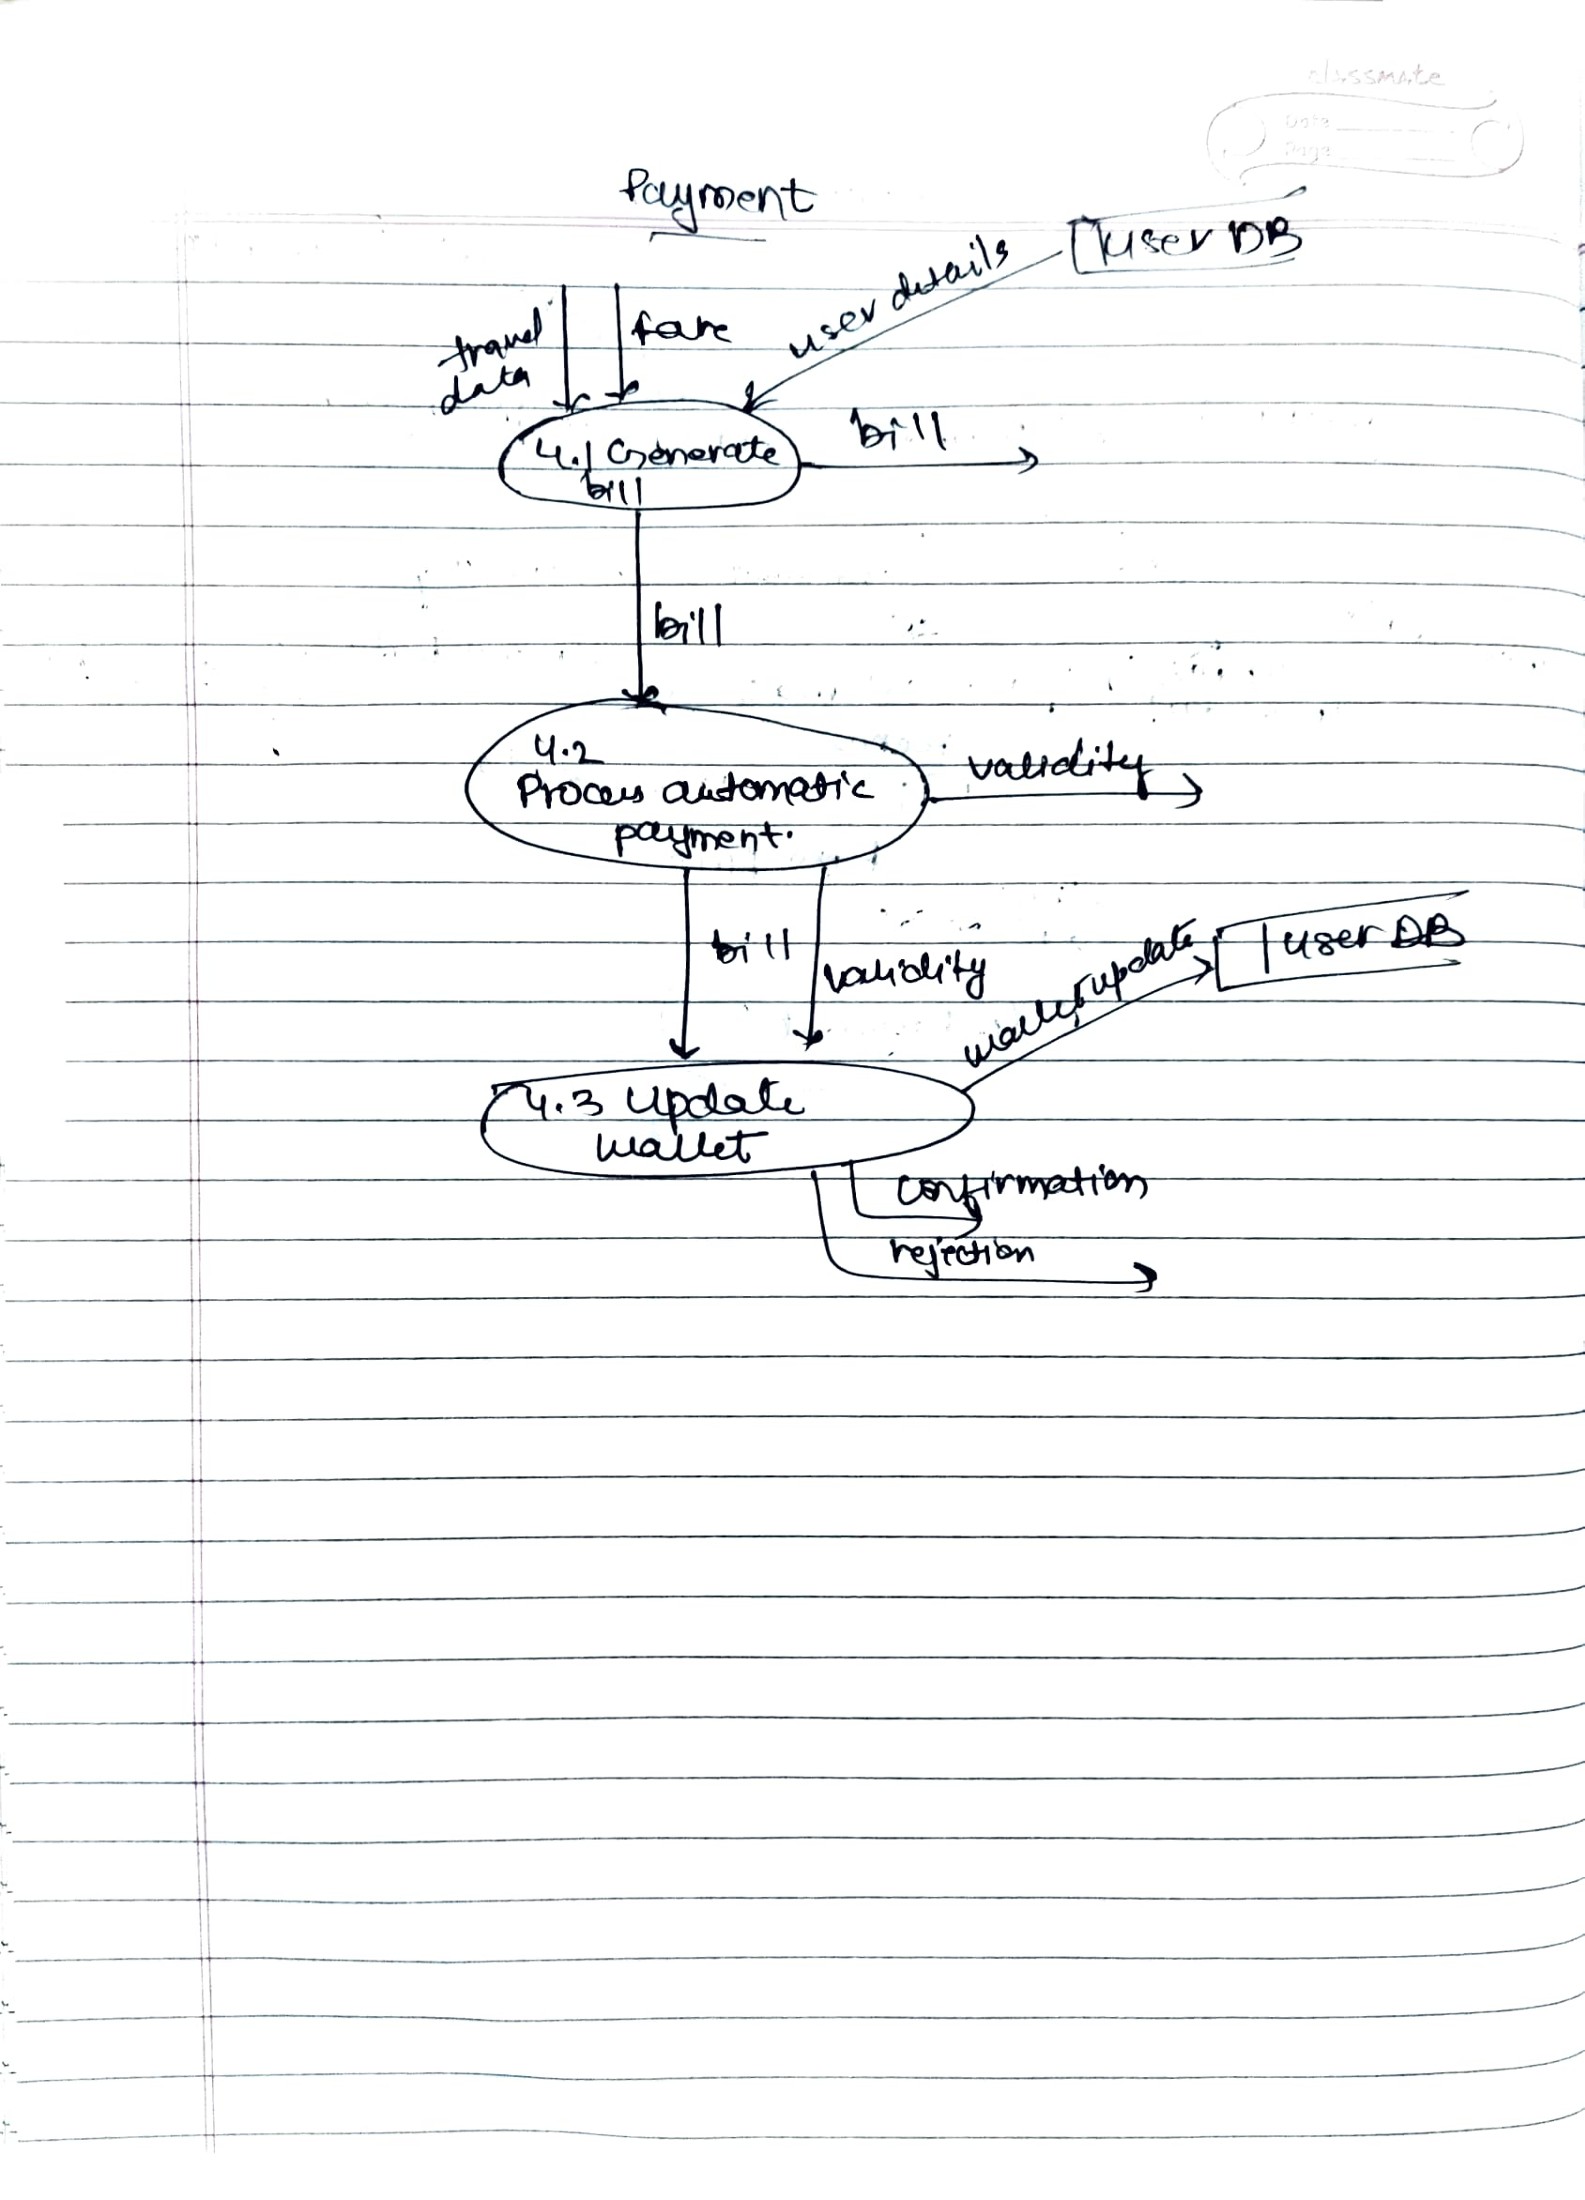 classmate
Date
Page
Payment
User DB
user details
travel
data
fare
4.1 Generate
bill
bill
bill
4.2
Process automatic
payment.
validity
bill
validity
wallet update
User DB
4.3 Update
wallet
confirmation
rejection